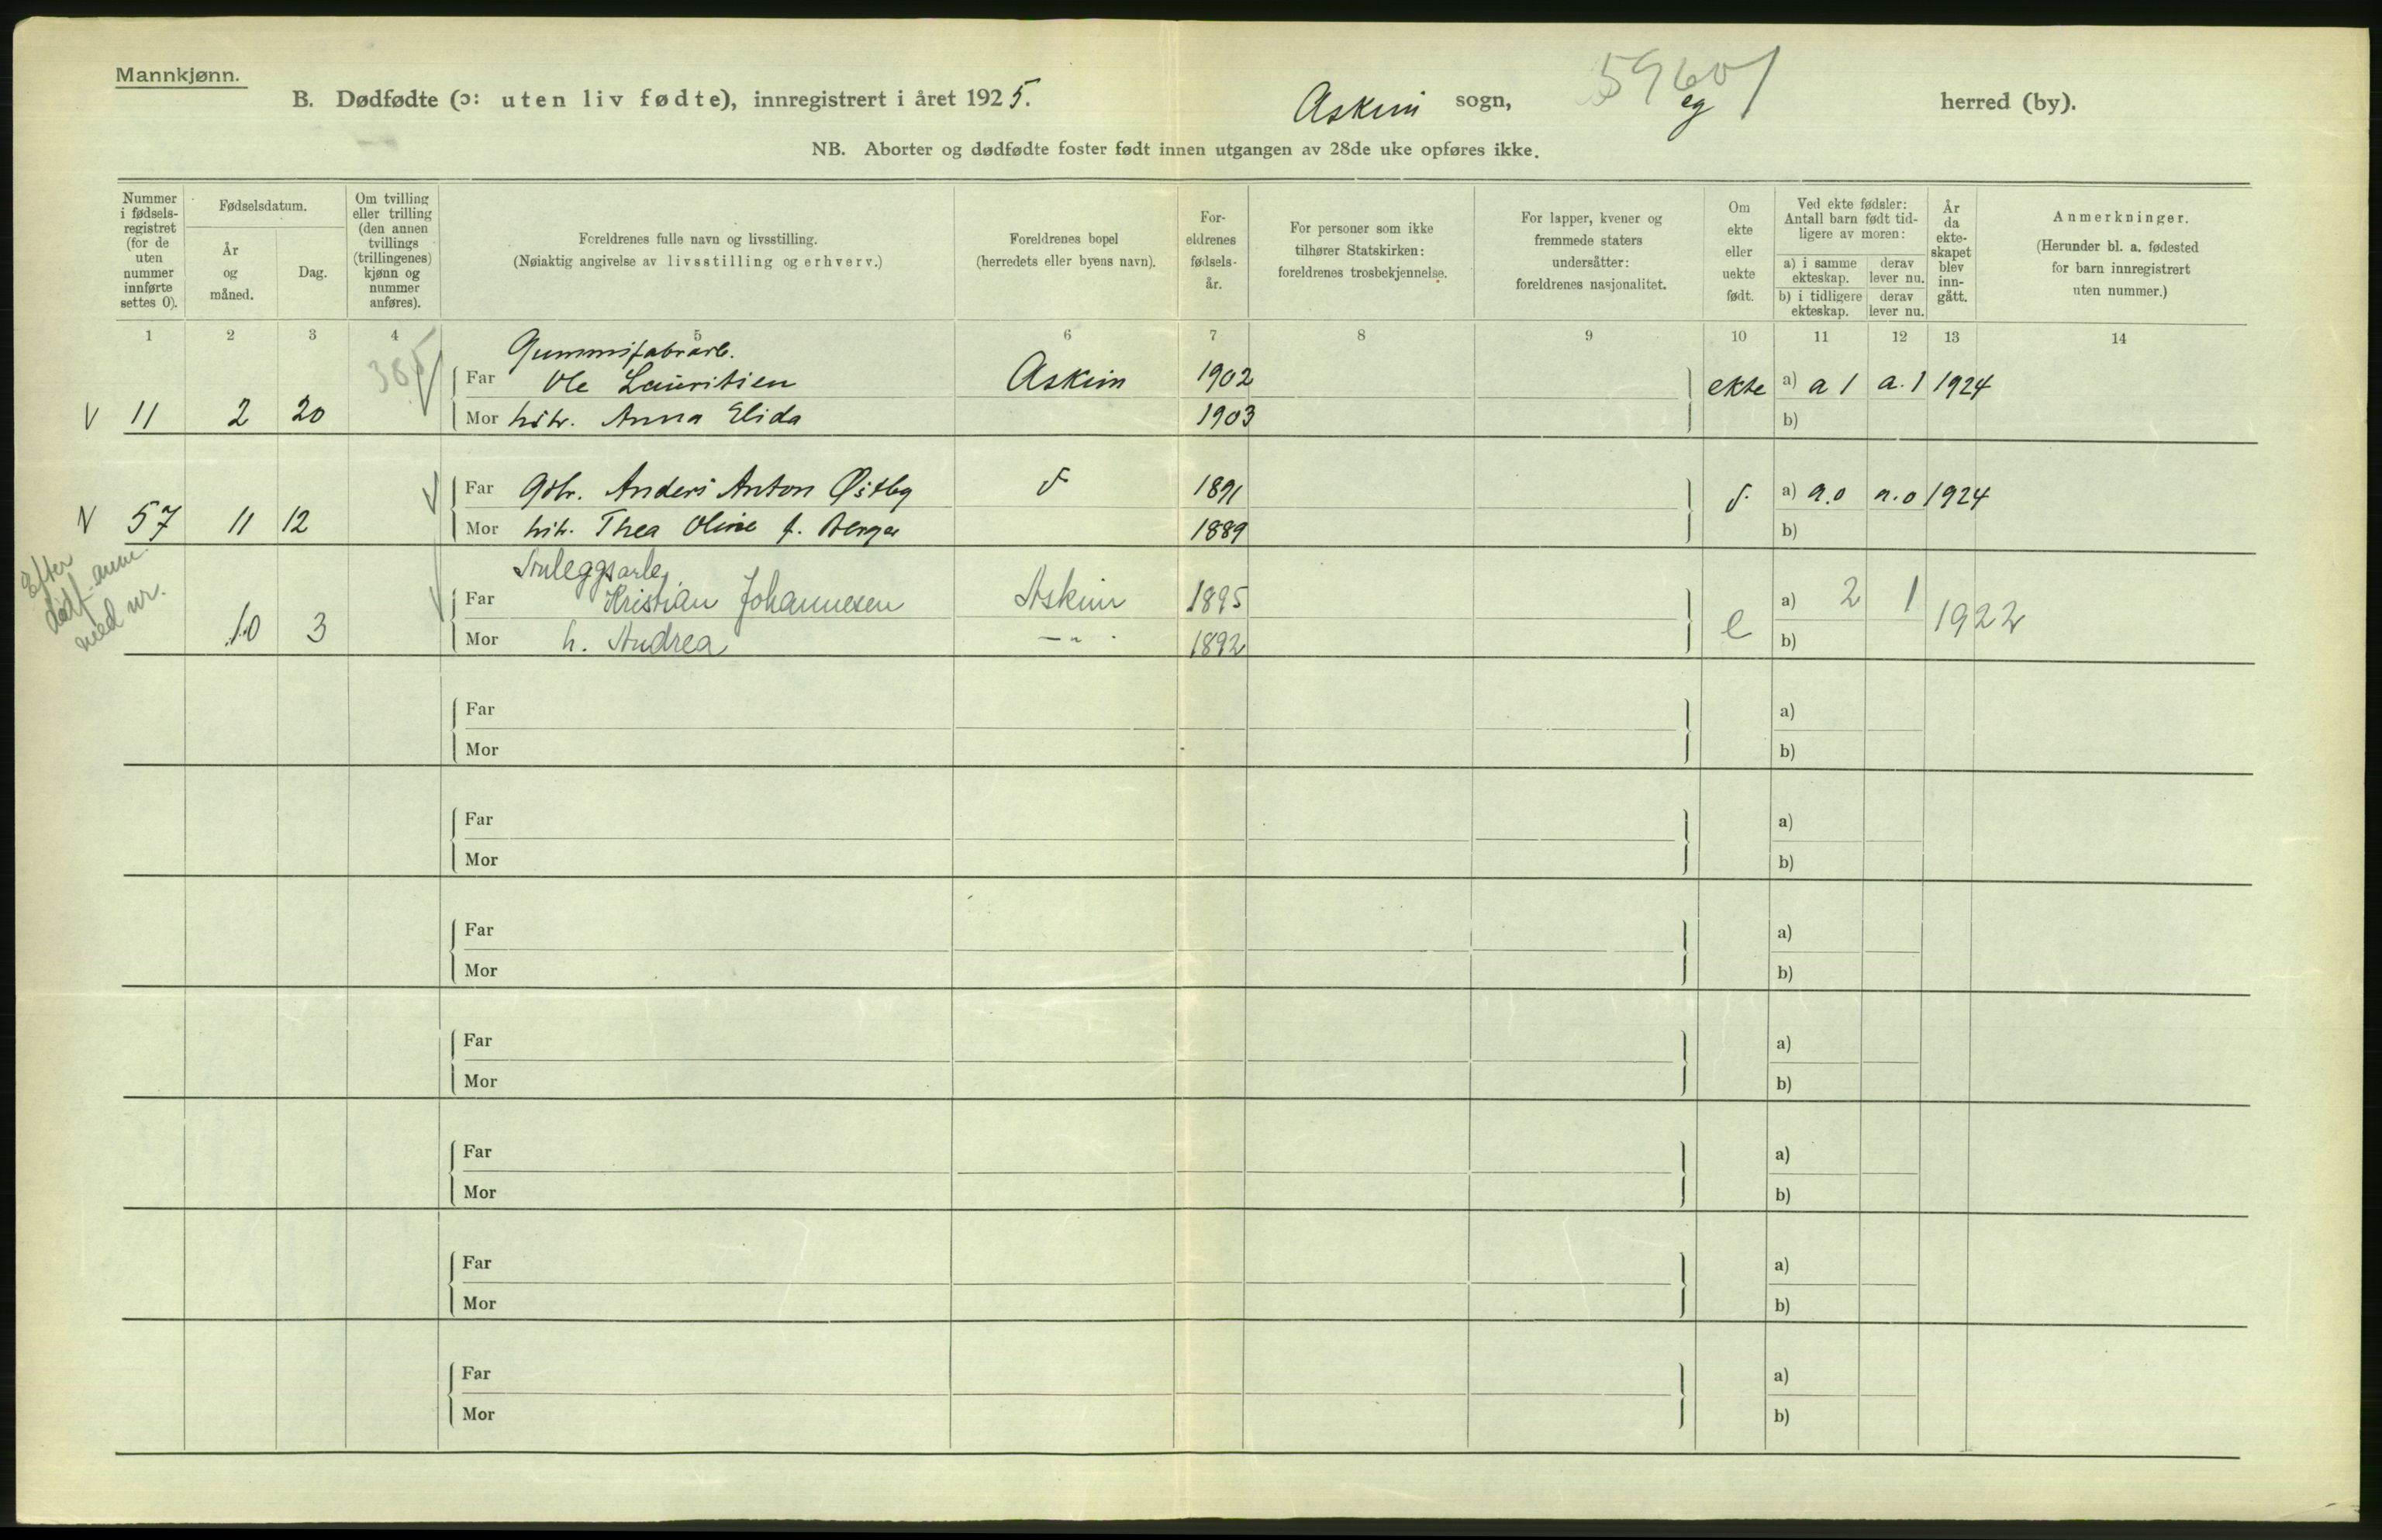 Mannkjønn.
B. Dødfødte (ɔ: uten liv fødte), innregistrert i året 1925.
Askim sogn,
59601
og
herred (by).
NB. Aborter og dødfødte foster født innen utgangen av 28de uke opføres ikke.
Nummer i fødsels-registret (for de uten nummer innførte settes 0).
Fødselsdatum.
År og måned.
Dag.
Om tvilling eller trilling (den annen tvillings (trillingenes) kjønn og nummer anføres).
Foreldrenes fulle navn og livsstilling.
(Nøiaktig angivelse av livsstilling og erhverv.)
Foreldrenes bopel
(herredets eller byens navn).
For-eldrenes fødsels-år.
For personer som ikke tilhører Statskirken: foreldrenes trosbekjennelse.
For lapper, kvener og fremmede staters undersåtter: foreldrenes nasjonalitet.
Om ekte eller uekte født.
Ved ekte fødsler: Antall barn født tid-ligere av moren:
a) i samme ekteskap.
derav lever nu.
b) i tidligere ekteskap.
derav lever nu.
År da ekte-skapet blev inn-gått.
Anmerkninger.
(Herunder bl. a. fødested for barn innregistrert uten nummer.)
1 2 3 4 5 6 7 8 9 10 11 12 13 14
Gummifabrarb.
Far Ole Lauritsen Askim 1902 ekte a) a 1 a. 1 1924
V 11 2 20 Mor hstr. Anna Elida 1903 b)
Far Gbr. Anders Anton Østby 1891 a) a.0 a.0 1924
V 57 11 12 Mor hstr. Thea Oline f. Berger 1889 b)
Efter
dødf. anm.
med nr.
Anleggsarb.
Far Kristian Johannesen Askim 1895 a) 2 1
10 3 Mor h. Andrea - " - 1892 e b) 1922
Far a)
Mor b)
Far a)
Mor b)
Far a)
Mor b)
Far a)
Mor b)
Far a)
Mor b)
Far a)
Mor b)
Far a)
Mor b)